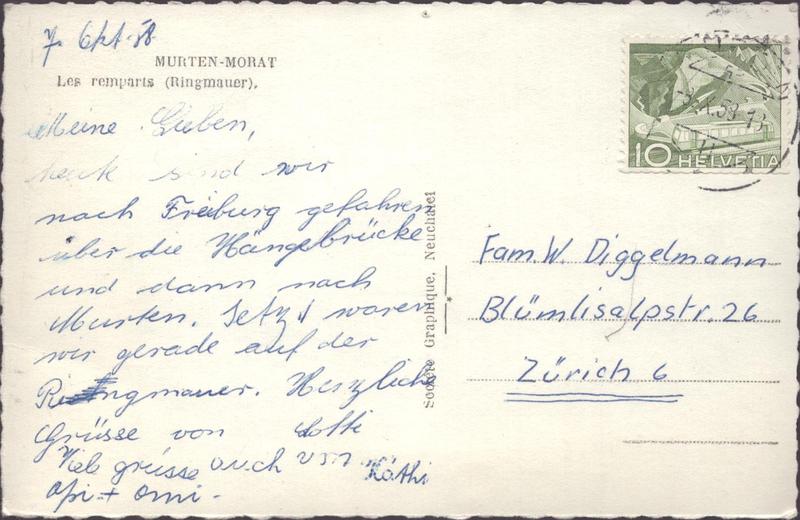 7. Okt. 58
MURTEN-MORAT
Les remparts (Ringmauer).
Meine Lieben,
heute sind wir
nach Freiburg gefahren
über die Hängebrücke
und dann nach
Murten. Jetzt waren
wir gerade auf der
Ringmauer. Herzliche
Grüsse von Lotti
Viele grüsse auch von Käthi
Opi + Omi -
Société Graphique, Neuchâtel
10 HELVETIA
Fam. W. Diggelmann
Blümlisalpstr. 26
Zürich 6